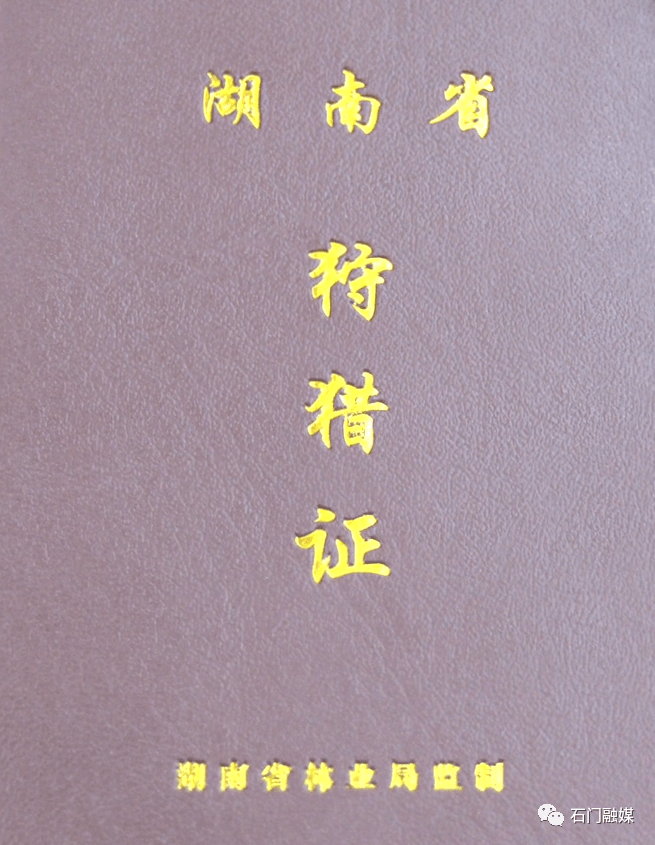 湖南省
狩
猎
证
湖南省林业局监制
石门融媒